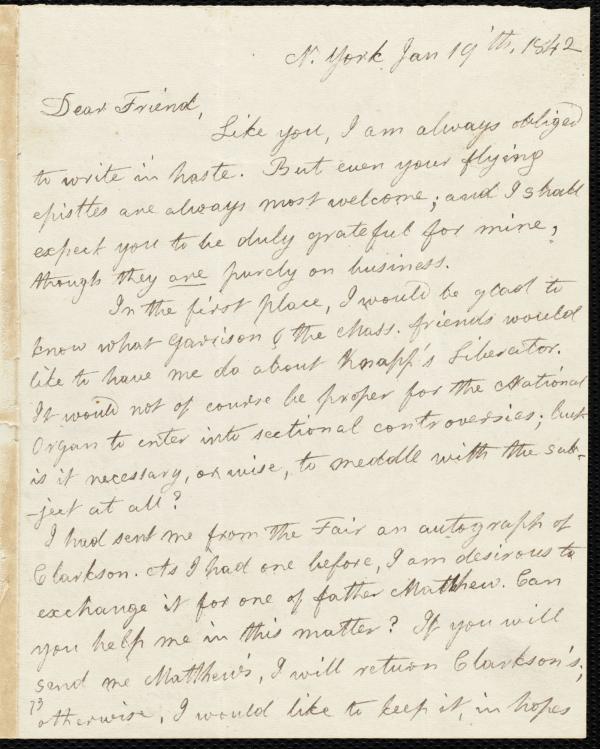 N. York Jan 19'th, 1842
Dear Friend,
Like you, I am always obliged
to write in haste. But even your flying
epistles are always most welcome; and I shall
expect you to be duly grateful for mine,
though they are purely on business.
In the first place, I would be glad to
know what Garrison & the Mass. friends would
like to have me do about Knapp's Liberator.
It would not of course be proper for the National
Organ to enter into sectional controversies; but
is it necessary, or wise, to meddle with the sub-
-ject at all?
I had sent me from the Fair an autograph of
Clarkson. As I had one before, I am desirous to
exchange it for one of father Matthew. Can
you help me in this matter? If you will
send me Matthew's, I will return Clarkson's;
otherwise, I would like to keep it, in hopes
73